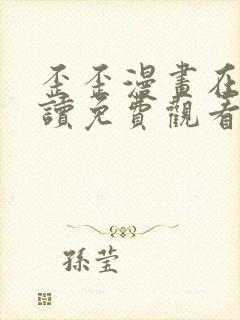 歪歪漫畫在
讀免費觀看
孫瑩